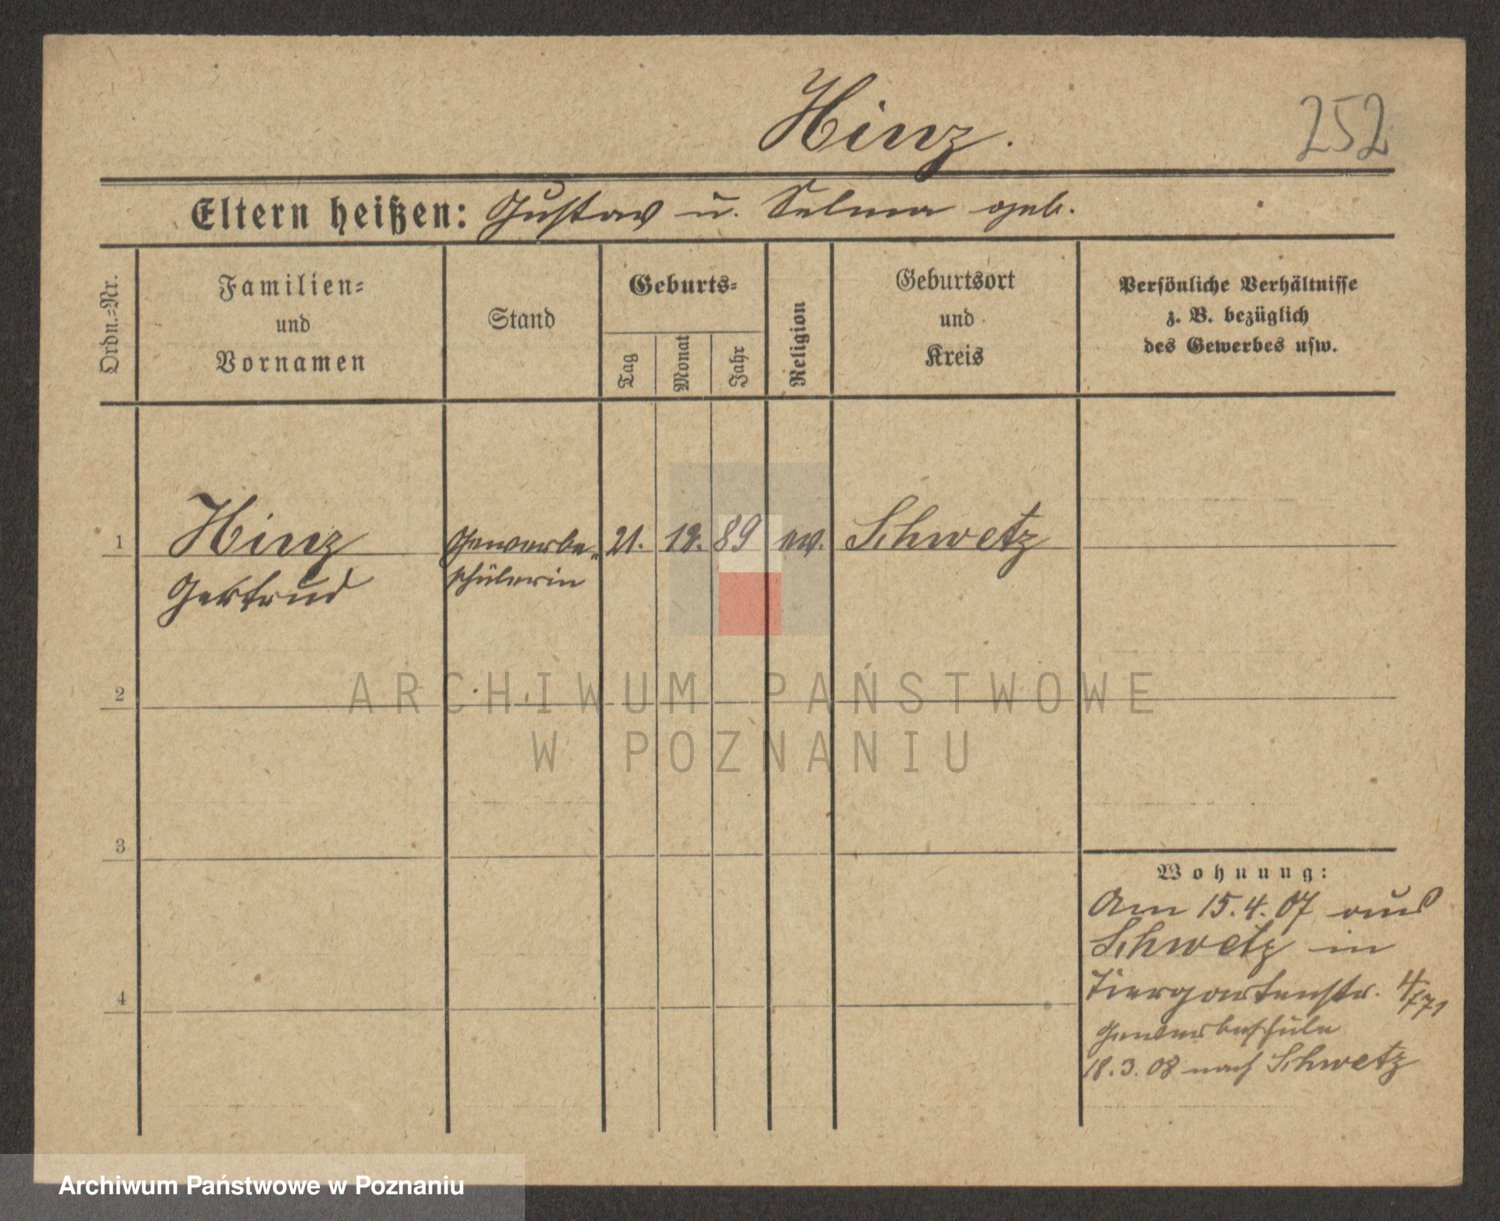 Hinz.
252
Eltern heißen: Gustav u. Selma geb.
Ordn.=Nr.
Familien=
und
Vornamen
Stand
Geburts=
Tag
Monat
Jahr
Religion
Geburtsort
und
Kreis
Persönliche Verhältnisse
z. B. bezüglich
des Gewerbes usw.
1
Hinz
Gertrud
Gewerbe=
schülerin
21.
89
ev.
Schwetz
ARCHIWUM PAŃSTWOWE
W POZNANIU
2
3
4
Wohnung:
Am 15.4.07 aus
Schwetz in
Tiergartenstr. 4
Gewerbeschule
18.3.08 nach Schwetz
Archiwum Państwowe w Poznaniu